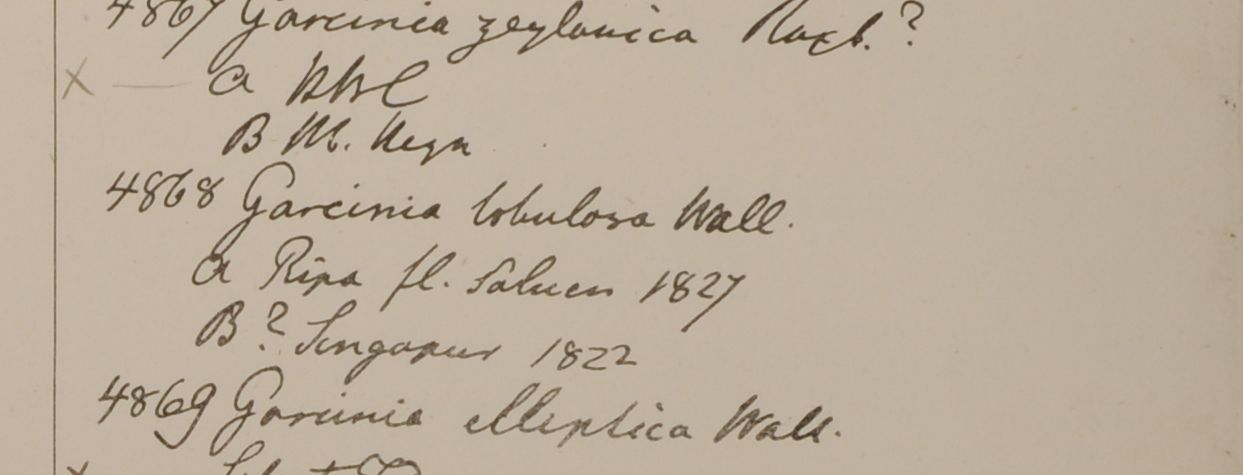 4867 Garcinia zeylanica Roxb.?
X — a HBC
B M. Heyn
4868 Garcinia lobulosa Wall.
a Ripa fl. Saluen 1827
B? Singapur 1822
4869 Garcinia elliptica Wall.
X